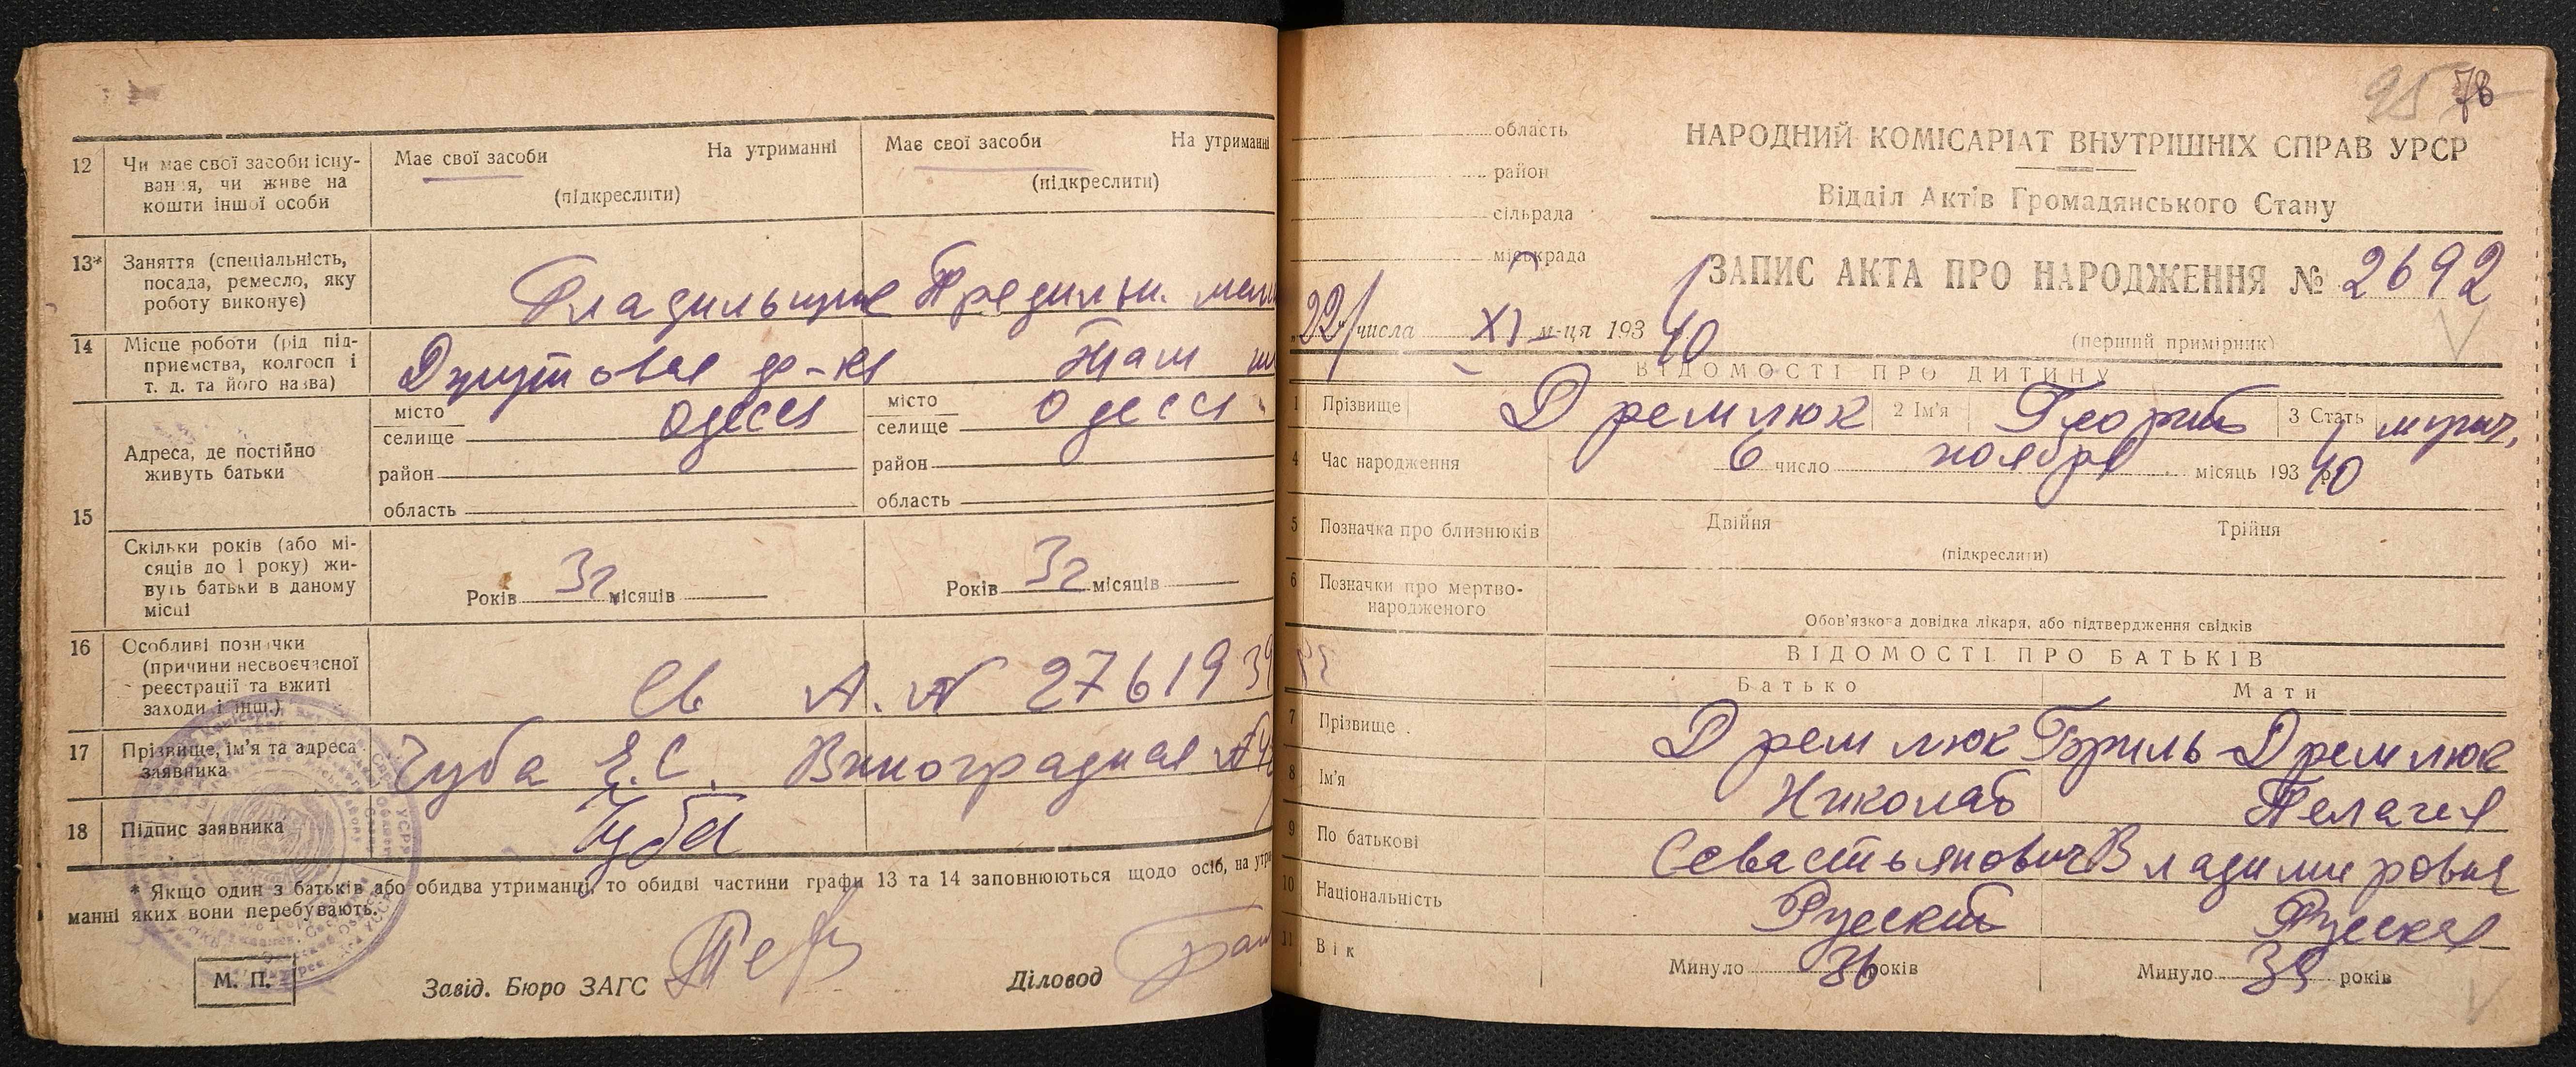 12 Чи має свої засоби існування, чи живе на кошти іншої особи
Має свої засоби На утриманні
(підкреслити)
Має свої засоби На утриманні
(підкреслити)
13* Заняття (спеціальність, посада, ремесло, яку роботу виконує)
Гладильщик
14 Місце роботи (рід підприємства, колгосп і т. д. та його назва)
Джутовая ф-ка
Там
15 Адреса, де постійно живуть батьки
місто
селище Одесса
район
область
місто
селище Одесса
район
область
Скільки років (або місяців до 1 року) живуть батьки в даному місці
Років 3г місяців
Років 3г місяців
16 Особливі позначки (причини несвоєчасної реєстрації та вжиті заходи і інш.)
17 Прізвище, ім'я та адреса заявника
Чуба Е.С. Виноградная
18 Підпис заявника
Чуба
* Якщо один з батьків або обидва утриманці, то обидві частини графи 13 та 14 заповнюються щодо осіб, на утри-
манні яких вони перебувають.
М. П.
Завід. Бюро ЗАГС
Діловод
95 78
область
район
сільрада
міськрада
НАРОДНИЙ КОМІСАРІАТ ВНУТРІШНІХ СПРАВ УРСР
Відділ Актів Громадянського Стану
ЗАПИС АКТА ПРО НАРОДЖЕННЯ № 2692
22 числа XI м-ця 193 40
(перший примірник)
ВІДОМОСТІ ПРО ДИТИНУ
1 Прізвище Дремлюк 2 Ім'я Георгий 3 Стать мужч.
4 Час народження 6 число ноября місяць 193 40 р.
5 Позначка про близнюків Двійня Трійня
(підкреслити)
6 Позначки про мертвонародженого
Обов'язкова довідка лікаря, або підтвердження свідків
ВІДОМОСТІ ПРО БАТЬКІВ
Батько Мати
7 Прізвище Дремлюк Бриль-Дремлюк
8 Ім'я Николай Пелагея
9 По батькові Севастьянович Владимировна
10 Національність Руский Руская
11 Вік Минуло 36 років Минуло років